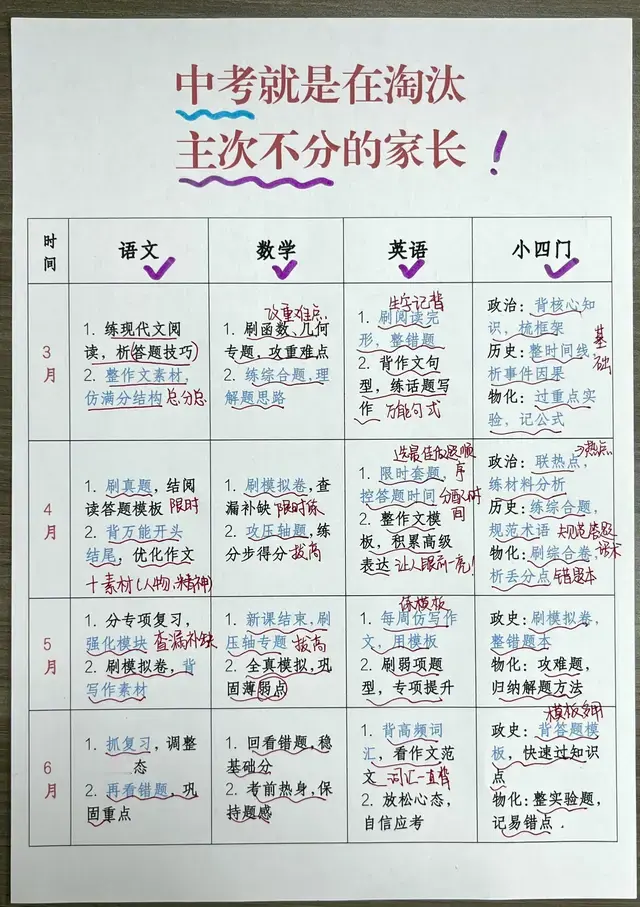 中考就是在淘汰
主次不分的家长！
时间
语文
数学
英语
小四门
3月
1. 练现代文阅
读，析答题技巧)
2. 整作文素材，
仿满分结构 总分总
攻重难点
1. 刷函数、几何
专题，攻重难点
2. 练综合题，理
解题思路
生字记背
1. 刷阅读完
形，整错题
2. 背作文句
型，练话题写
作 万能句式
政治：背核心知
识，梳框架
历史：整时间线，
析事件因果
物化：过重点实
验，记公式
基础
4月
1. 刷真题，结阅
读答题模板 限时
2. 背万能开头
结尾，优化作文
十素材(人物,精神)
1. 刷模拟卷，查
漏补缺 限时练
2. 攻压轴题，练
分步得分 拔高
选最佳做题顺序
1. 限时套题，
控答题时间 分配时间
2. 整作文模
板，积累高级
表达 让人眼前一亮!
热点
政治：联热点，
练材料分析
历史：练综合题，
规范术语 规范答题话术
物化：刷综合卷，
析丢分点 错题本
5月
1. 分专项复习，
强化模块 查漏补缺
2. 刷模拟卷，背
写作素材
1. 新课结束，刷
压轴专题 拔高
2. 全真模拟，巩
固薄弱点
练模板
1. 每周仿写作
文，用模板
2. 刷弱项题
型，专项提升
政史：刷模拟卷，
整错题本
物化：攻难题，
归纳解题方法
6月
1. 抓复习，调整
态
2. 再看错题，巩
固重点
1. 回看错题，稳
基础分
2. 考前热身，保
持题感
1. 背高频词
汇，看作文范
文 词汇一直背
2. 放松心态，
自信应考
模板多用
政史：背答题模
板，快速过知识
点
物化：整实验题，
记易错点.